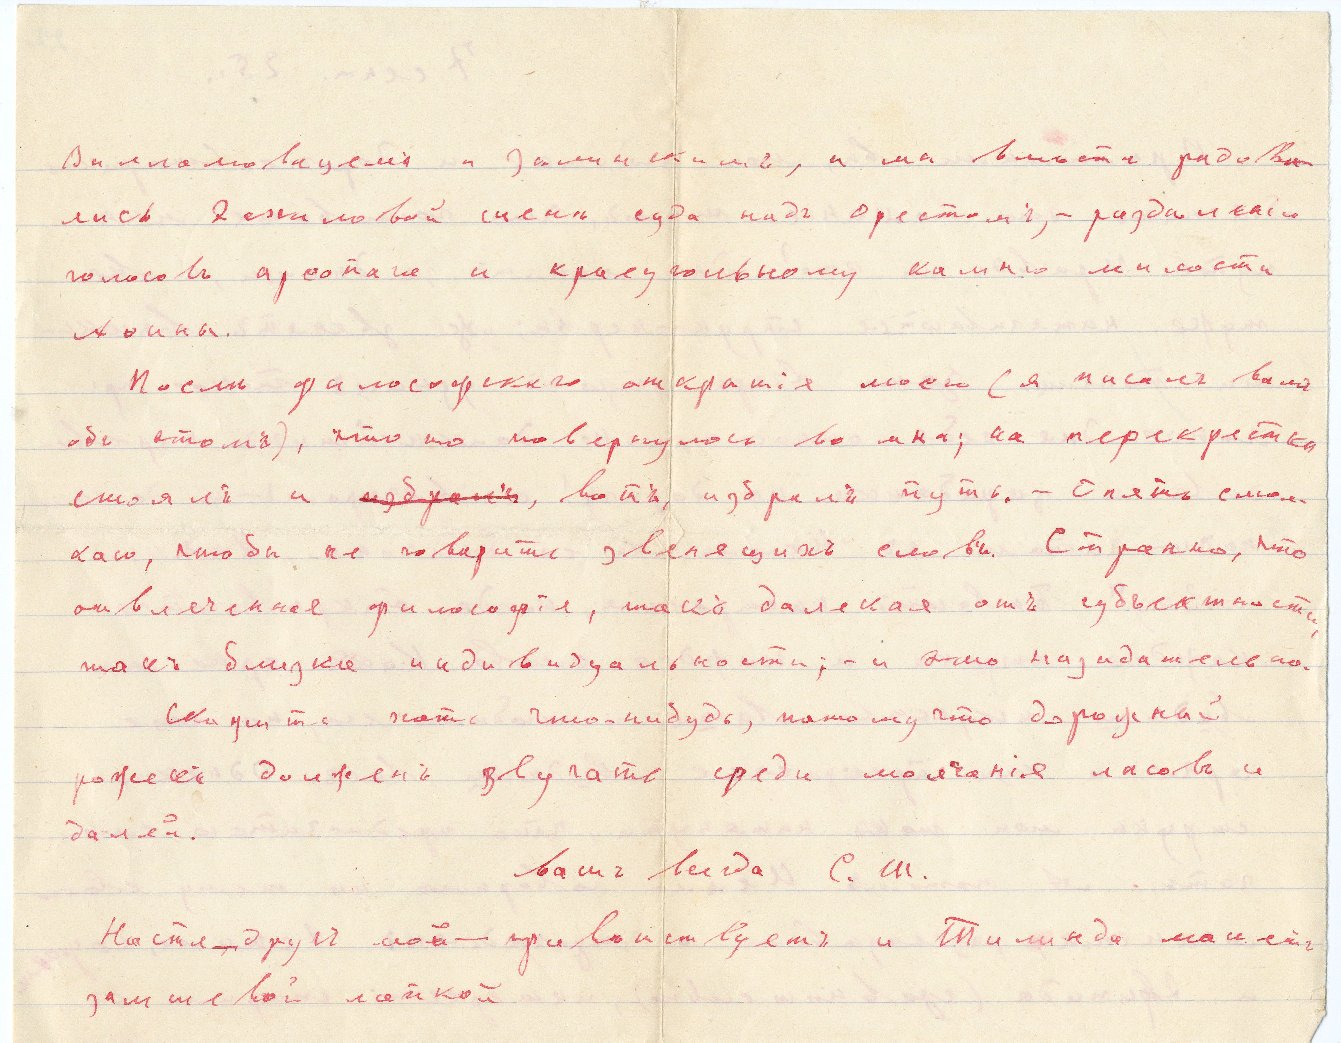 Вилламовицемъ и Зелинскимъ, и мы вмѣстѣ радова
лись Эсхиловой сценѣ суда надъ Орестомъ, – раздѣленію
голосовъ ареопага и краеугольному камню милости
Аѳины.
Послѣ философскаго открытія моего (я писалъ вамъ
объ этомъ), что то повернулось во мнѣ; на перекресткѣ
стоялъ и избралъ, вотъ, избралъ путь. – Опять смол-
каю, чтобы не говорить звенящихъ словъ. Странно, что
отвлеченная философія, такъ далекая отъ субъектности,
такъ близка индивидуальности; – и это назидательно.
Скажите хоть что-нибудь, потому что дорожный
рожекъ долженъ звучать среди молчанія лѣсовъ и
далей.
вашъ всегда С. Ш.
Настя – другъ мой – привѣтствуетъ и Тилинда машетъ
замшевой лапкой